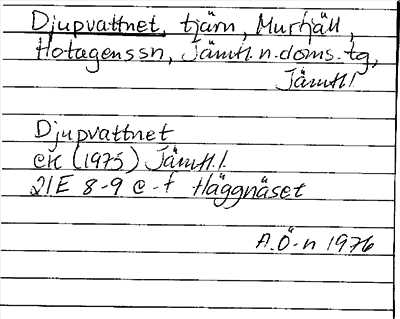 Djupvattnet, tjärn, Murhjäll,
Hotagenssn, Jämtl. n. doms. tg,
Jämtl.
Djupvattnet
ek (1975) Jämtl. l.
21E 8-9 e-f Häggnäset
A.Ö-n 1976